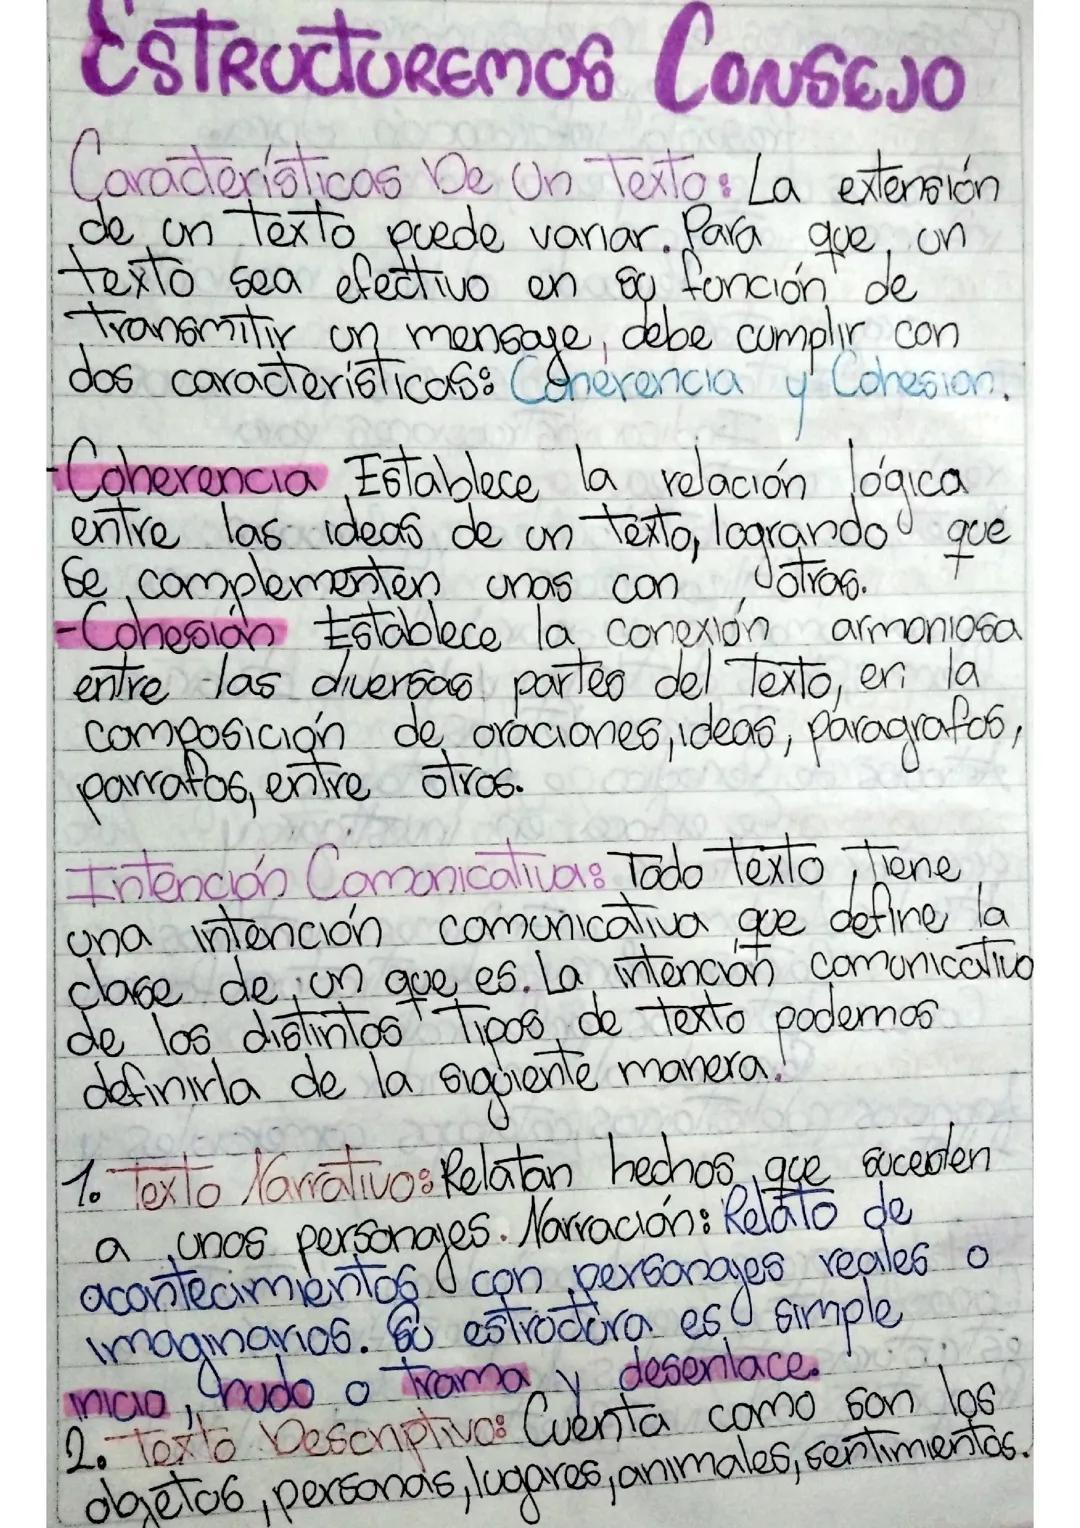 ESTRUCTUREMOS CONSEJO
Características De Un Texto: La extensión
de un texto puede variar. Para que un
texto sea efectivo en su función de
transmitir un mensaje, debe cumplir con
dos características: Coherencia y Cohesion.
-Coherencia Establece la relación lógica
entre las ideas de un texto, logrando que
se complementen unas con otras.
-Cohesión Establece la conexión armoniosa
entre las diversas partes del texto, en la
composición de oraciones, ideas, paragrafos,
parrafos, entre otros.
Intención Comunicativa: Todo texto tiene
una intención comunicativa que define la
clase de un que es. La intención comunicativo
de los distintos tipos de texto podemos
definirla de la siguiente manera.
1. Texto Narrativo: Relatan hechos que suceden
a unos personajes. Narración: Relato de
acontecimientos con personajes reales o
imaginarios. Su estructura es simple
inicio, nudo o trama y desenlace.
2. Texto Descriptivo: Cuenta como son los
objetos, personas, lugares, animales, sentimientos.